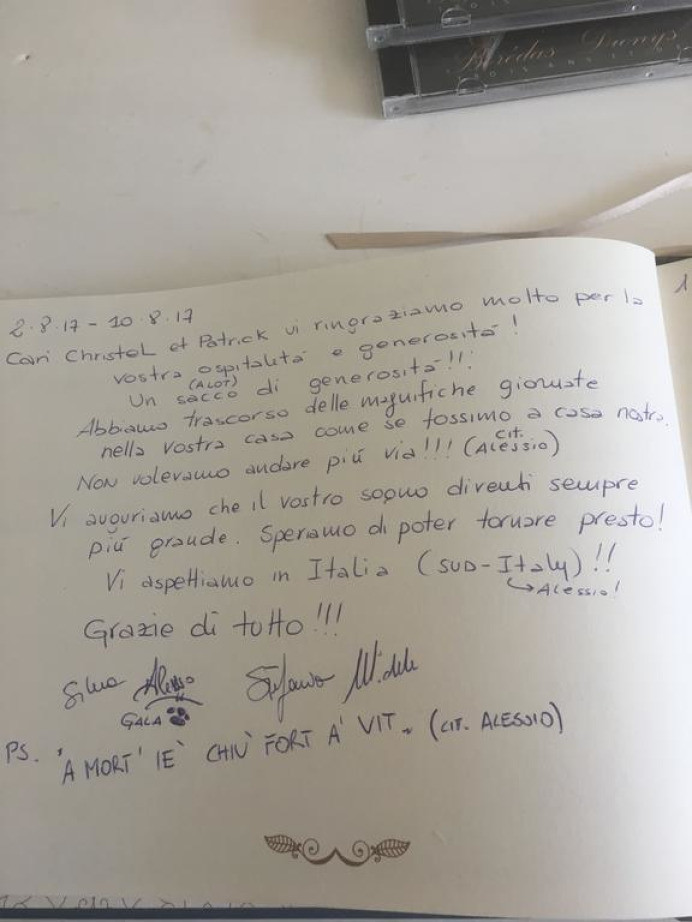 Dionys
2.8.17 - 10.8.17
Cari Christel et Patrick vi ringraziamo molto per la
vostra ospitalità e generosità!
(ALOT)
Un sacco di generosità!!!
Abbiamo trascorso delle magnifiche giornate
nella vostra casa come se fossimo a casa nostra.
Non volevamo andare più via!!! (CIT. Alessio)
Vi auguriamo che il vostro sogno diventi sempre
più grande. Speriamo di poter tornare presto!
Vi aspettiamo in Italia (SUD-Italy)!!
→Alessio!
Grazie di tutto!!!
Silvia Alessio Stefania Michele
GALA
PS. 'A MORT' IE' CHIU' FORT A' VIT. (CIT. ALESSIO)
1